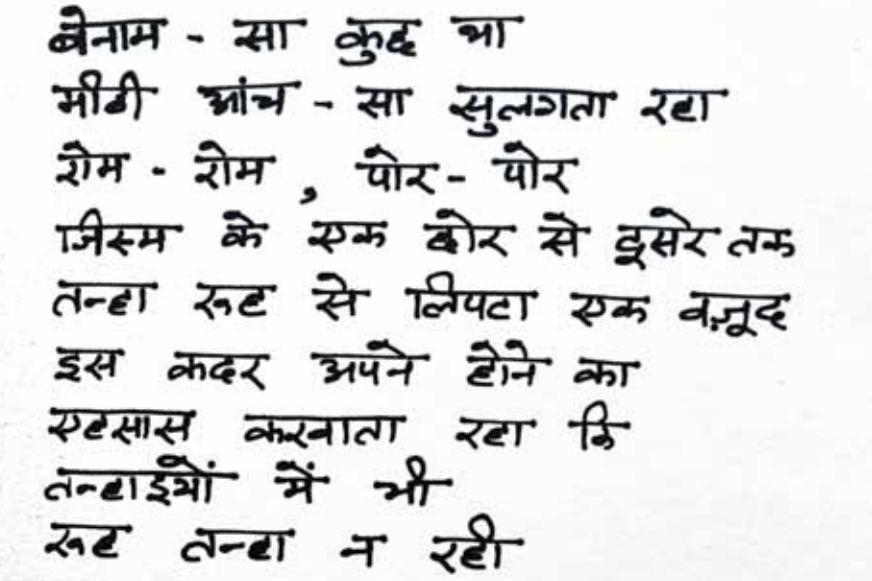 बेनाम - सा कुछ था
मीठी आंच - सा सुलगता रहा
रोम - रोम , पोर - पोर
जिस्म के एक छोर से दूसरे तक
तन्हा रूह से लिपटा एक वज़ूद
इस कदर अपने होने का
एहसास करवाता रहा कि
तन्हाइयों में भी
रूह तन्हा न रही